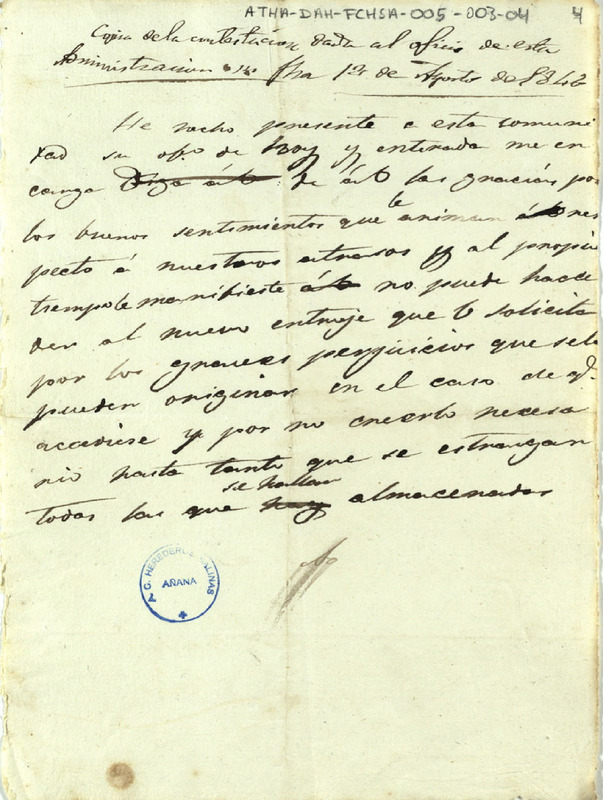 ATHA-DAH-FCHSA-005-003-04 4
Copia de la contestacion dada al oficio de esta
Administracion fha 12 de Agosto de 1842
He hecho presente a esta comuni
dad su ofo. de hoy y enterada me en
carga de á V las gracias por
los buenos sentimientos que le animan res
pecto á nuestros atrasos y al propio
tiempo le manifieste no puede hacce
der al nuevo entruje que V solicita
por los graves perjuicios que se le
pueden originar en el caso de q.
accediese y por no creerlo necesa
rio hasta tanto que se estraigan
todas las que se hallan hay almacenadas
C. HEREDEROS SALINAS
AÑANA